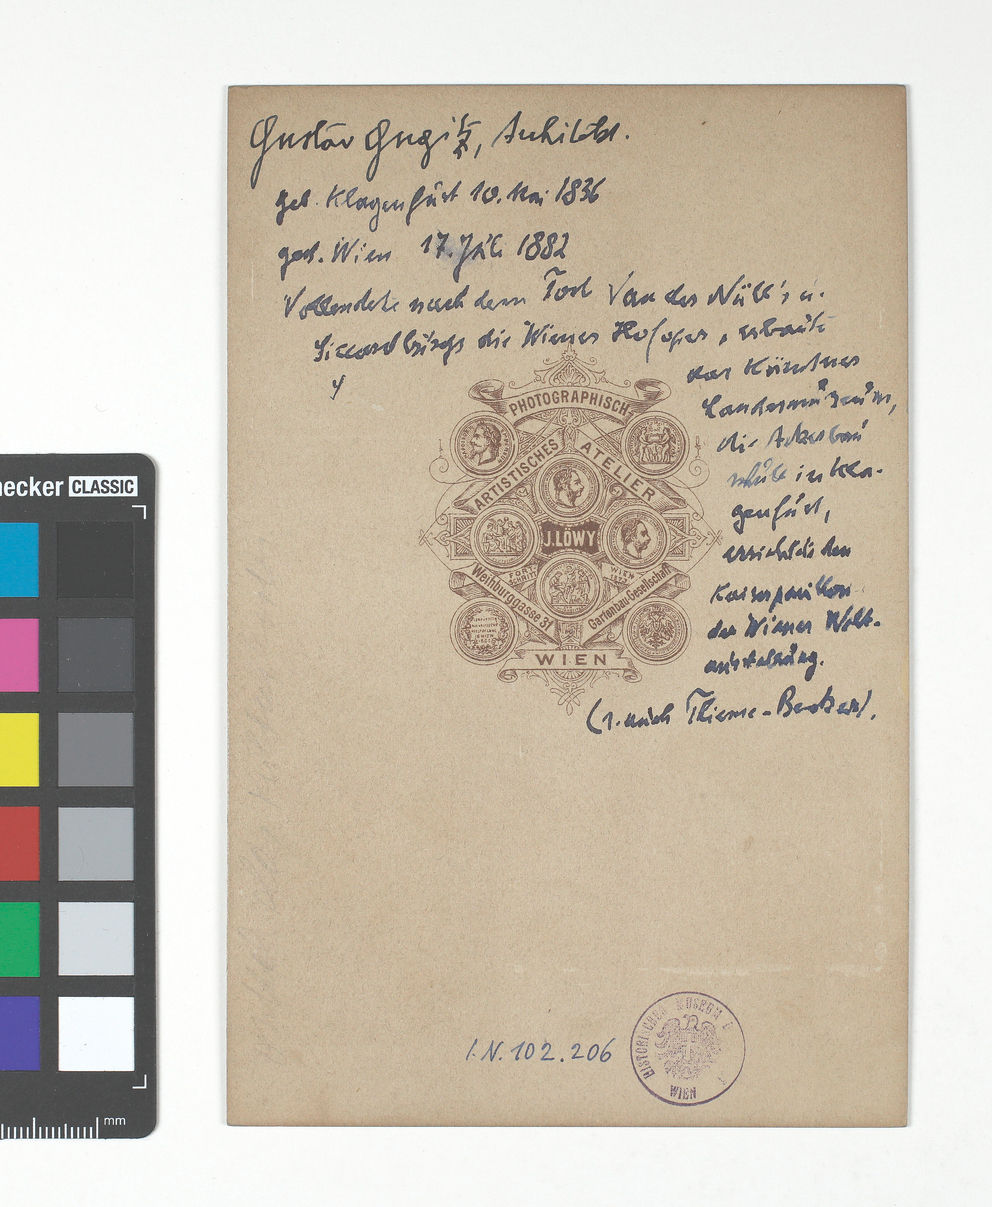 Gustav Gugitz, Architekt.
geb. Klagenfurt 10. Mai 1836
gest. Wien 17. Juli 1882
Vollendete nach dem Tod Van der Nüll's u.
Siccardsburgs die Wiener Hofoper, erbaute
das Kärntner
Landesmuseum,
die Ackerbau
schule in Kla-
genfurt,
errichtete den
Kaiserpavillon
der Wiener Welt-
ausstellung.
(s. auch Thieme-Becker).
PHOTOGRAPHISCH
ARTISTISCHES ATELIER
J. LÖWY
FORTSCHRITT WIEN
Weihburggasse 31 Gartenbau-Gesellschaft
WIEN
I.N. 102.206
HISTORISCHES MUSEUM
WIEN
hecker CLASSIC
mm